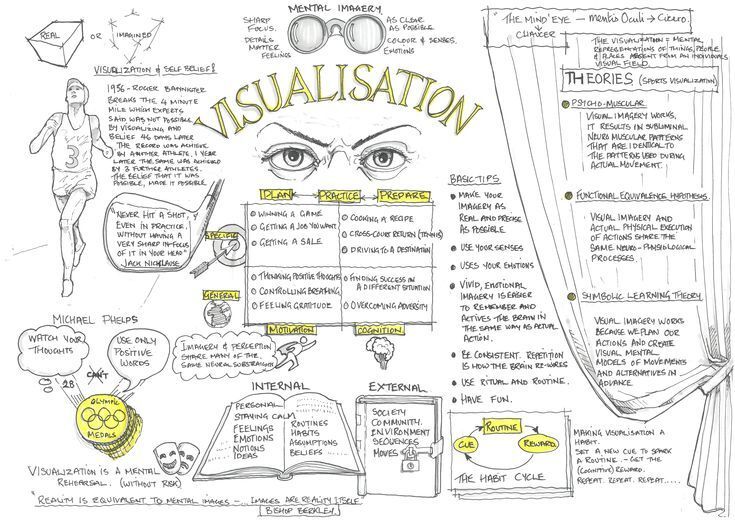 REAL
OR
IMAGINED
VISUALIZATION & SELF BELIEF!
1956 - ROGER BANNISTER
BREAKS THE 4 MINUTE
MILE WHICH EXPERTS
SAID WAS NOT POSSIBLE
BY VISUALIZING AND
BELIEF 46 DAYS LATER
THE RECORD WAS ACHIEVE
BY ANOTHER ATHLETE. 1 YEAR
LATER THE SAME WAS ACHIEVED
BY 3 FURTHER ATHLETES.
THE BELIEF THAT IT WAS
POSSIBLE, MADE IT POSSIBLE.
3
"NEVER HIT A SHOT,
EVEN IN PRACTICE,
WITHOUT HAVING A
VERY SHARP IN-FOCUS
OF IT IN YOUR HEAD"
JACK NICKLAUSE
MENTAL IMAGERY
SHARP
FOCUS.
DETAILS
MATTER.
FEELINGS
AS CLEAR
AS POSSIBLE
COLOUR & SENSES.
EMOTIONS
VISUALISATION
PLAN
PRACTICE
PREPARE
SPECIFIC
WINNING A GAME
GETTING A JOB YOU WANT
GETTING A SALE
COOKING A RECIPE
CROSS-COURT RETURN (TENNIS)
DRIVING TO A DESTINATION
GENERAL
THINKING POSITIVE THOUGHTS
CONTROLLING BREATHING
FEELING GRATITUDE
FINDING SUCCESS IN
A DIFFERENT SITUATION
OVERCOMING ADVERSITY
MOTIVATION
COGNITION
"THE MIND' EYE — MENTIS OCULI → CICERO.
↳ CHAUCER
THE VISUALIZATION = MENTAL
REPRESENTATIONS OF THINGS, PEOPLE
& PLACES ABSENT FROM AN INDIVIDUALS
VISUAL FIELD.
THEORIES (SPORTS VISUALIZATION)
PSYCHO-MUSCULAR
VISUAL IMAGERY WORKS,
IT RESULTS IN SUBLIMINAL
NEURO MUSCULAR PATTERNS
THAT ARE IDENTICAL TO
THE PATTERNS USED DURING
ACTUAL MOVEMENT.
FUNCTIONAL EQUIVALENCE HYPOTHESIS
VISUAL IMAGERY AND
ACTUAL PHYSICAL EXECUTION
OF ACTIONS SHARE THE
SAME NEURO-PHYSIOLOGICAL
PROCESSES.
SYMBOLIC LEARNING THEORY
VISUAL IMAGERY WORKS
BECAUSE WE PLAN OUR
ACTIONS AND CREATE
VISUAL MENTAL
MODELS OF MOVEMENTS
AND ALTERNATIVES IN
ADVANCE.
BASIC TIPS
MAKE YOUR
IMAGERY AS
REAL AND PRECISE
AS POSSIBLE
USE YOUR SENSES
USES YOUR EMOTIONS
VIVID, EMOTIONAL
IMAGERY IS EASIER
TO REMEMBER AND
ACTIVES THE BRAIN IN
THE SAME WAY AS ACTUAL
ACTION.
BE CONSISTENT. REPETITION
IS HOW THE BRAIN RE-WORKS
USE RITUAL AND ROUTINE.
HAVE FUN.
MICHAEL PHELPS
WATCH YOUR
THOUGHTS
USE ONLY
POSITIVE
WORDS
CAN'T
28
OLYMPIC
MEDALS
IMAGERY & PERCEPTION
SHARE MANY OF THE
SAME NEURAL SUBSTRATES
VISUALIZATION IS A MENTAL
REHEARSAL. (WITHOUT RISK)
"REALITY IS EQUIVALENT TO MENTAL IMAGES - ..IMAGES ARE REALITY ITSELF.
BISHOP BERKLEY.
INTERNAL
PERSONAL
STAYING CALM
FEELINGS
EMOTIONS
NOTIONS
IDEAS
ROUTINES
HABITS
ASSUMPTIONS
BELIEFS ....
EXTERNAL
SOCIETY
COMMUNITY.
ENVIRONMENT
SEQUENCES
MOVES
ROUTINE
CUE
REWARD
THE HABIT CYCLE
MAKING VISUALISATION A
HABIT.
SET A NEW CUE TO SPARK
A ROUTINE. - GET THE
(COGNITIVE) REWARD.
REPEAT. REPEAT. REPEAT.....